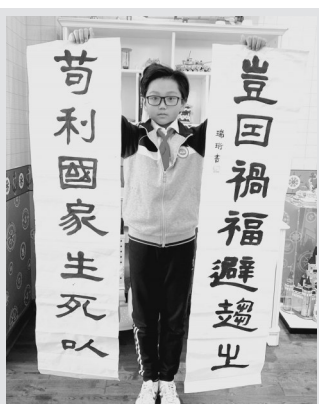 苟利國家生死以
豈因禍福避趨之